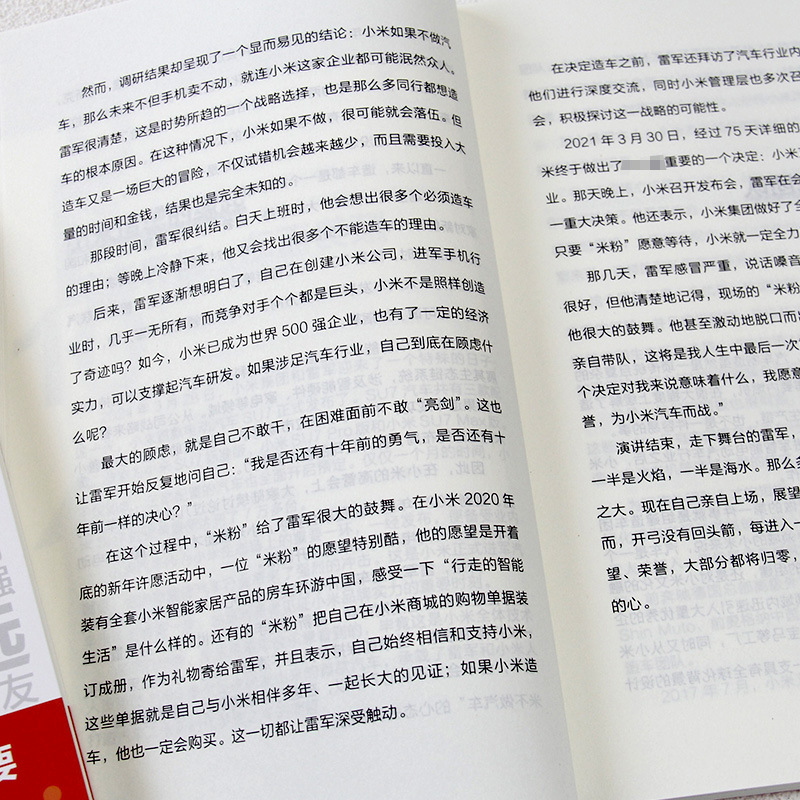 然而，调研结果却呈现了一个显而易见的结论：小米如果不做汽
车，那么未来不但手机卖不动，就连小米这家企业都可能泯然众人。
雷军很清楚，这是时势所趋的一个战略选择，也是那么多同行都想造
车的根本原因。在这种情况下，小米如果不做，很可能就会落伍。但
造车又是一场巨大的冒险，不仅试错机会越来越少，而且需要投入大
量的时间和金钱，结果也是完全未知的。
那段时间，雷军很纠结。白天上班时，他会想出很多个必须造车
的理由；等晚上冷静下来，他又会找出很多个不能造车的理由。
后来，雷军逐渐想明白了，自己在创建小米公司，进军手机行
业时，几乎一无所有，而竞争对手个个都是巨头，小米不是照样创造
了奇迹吗？如今，小米已成为世界 500 强企业，也有了一定的经济
实力，可以支撑起汽车研发。如果涉足汽车行业，自己到底在顾虑什
么呢？
最大的顾虑，就是自己不敢干，在困难面前不敢“亮剑”。这也
让雷军开始反复地问自己：“我是否还有十年前的勇气，是否还有十
年前一样的决心？”
在这个过程中，“米粉”给了雷军很大的鼓舞。在小米 2020 年
底的新年许愿活动中，一位“米粉”的愿望特别酷，他的愿望是开着
装有全套小米智能家居产品的房车环游中国，感受一下“行走的智能
生活”是什么样的。还有的“米粉”把自己在小米商城的购物单据装
订成册，作为礼物寄给雷军，并且表示，自己始终相信和支持小米，
这些单据就是自己与小米相伴多年、一起长大的见证；如果小米造
车，他也一定会购买。这一切都让雷军深受触动。
在决定造车之前，雷军还拜访了汽车行业内
他们进行深度交流，同时小米管理层也多次召
会，积极探讨这一战略的可能性。
2021 年 3 月 30 日，经过 75 天详细的
米终于做出了 重要的一个决定：小
业。那天晚上，小米召开发布会，雷军在会
一重大决策。他还表示，小米集团做好了全
只要“米粉”愿意等待，小米就一定全力
那几天，雷军感冒严重，说话嗓音
很好，但他清楚地记得，现场的“米粉
他很大的鼓舞。他甚至激动地脱口而出
亲自带队，这将是我人生中最后一次
个决定对我来说意味着什么，我愿意
誉，为小米汽车而战。”
演讲结束，走下舞台的雷军，
一半是火焰，一半是海水。那么多
之大。现在自己亲自上场，展望
而，开弓没有回头箭，每进入一
望、荣誉，大部分都将归零，
的心。
强
友
要